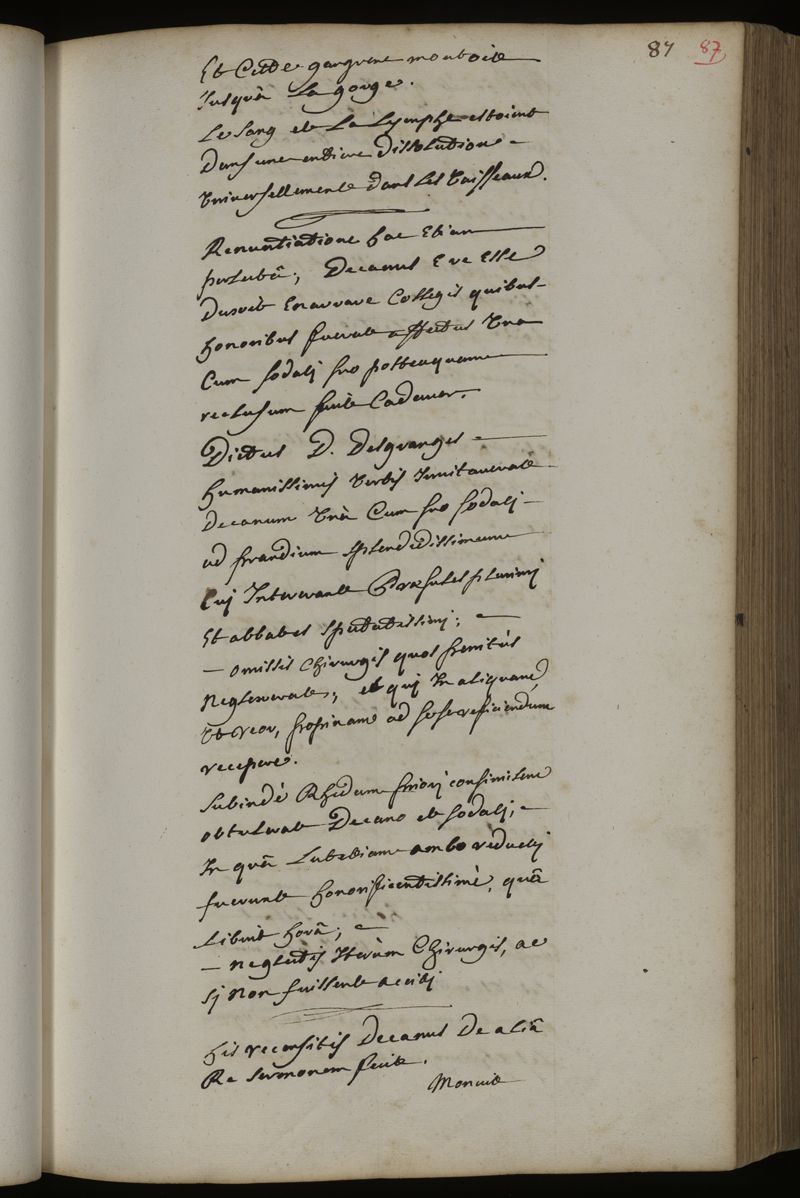 87 87
Et Cette gangrene montoit
Jusqu'à La gorge.
Le sang et La Lymphe estoient
Dans une entiere Dissolution
Universellement dans Les Vaisseaux.
Renuntiatione hac Etiam
perlectâ, Decanus E re Esse
Duxit Enarrare Collegis quibus
honoribus fuerat affectus Una
Cum sodalj suo posteaquam
reclusum fuit Cadaver.
Dictus D. Desgranges
humanissimis Verbis Invitaverat
Decanum Unà Cum suo sodalj
ad prandium splendidissimum
Cuj Intererant Præsules plurimj
Et abbates spectatissimj;
omissis Chirurgis quos penitùs
neglexerat; et quj In aliquam,
Ut reor, popinam ad sese reficiendum
recepere.
Subindè Rhedam priorj consimilem
obtulerat Decano et sodalj;
In quâ Lutetiam ambo reductj
fuerunt honorificentissimè, quâ
Libuit horâ;
neglectis Iterùm Chirurgis, ac
sj non fuissent accitj
his recensitis Decanus De aliâ
Re sermonem fecit.
Monuit